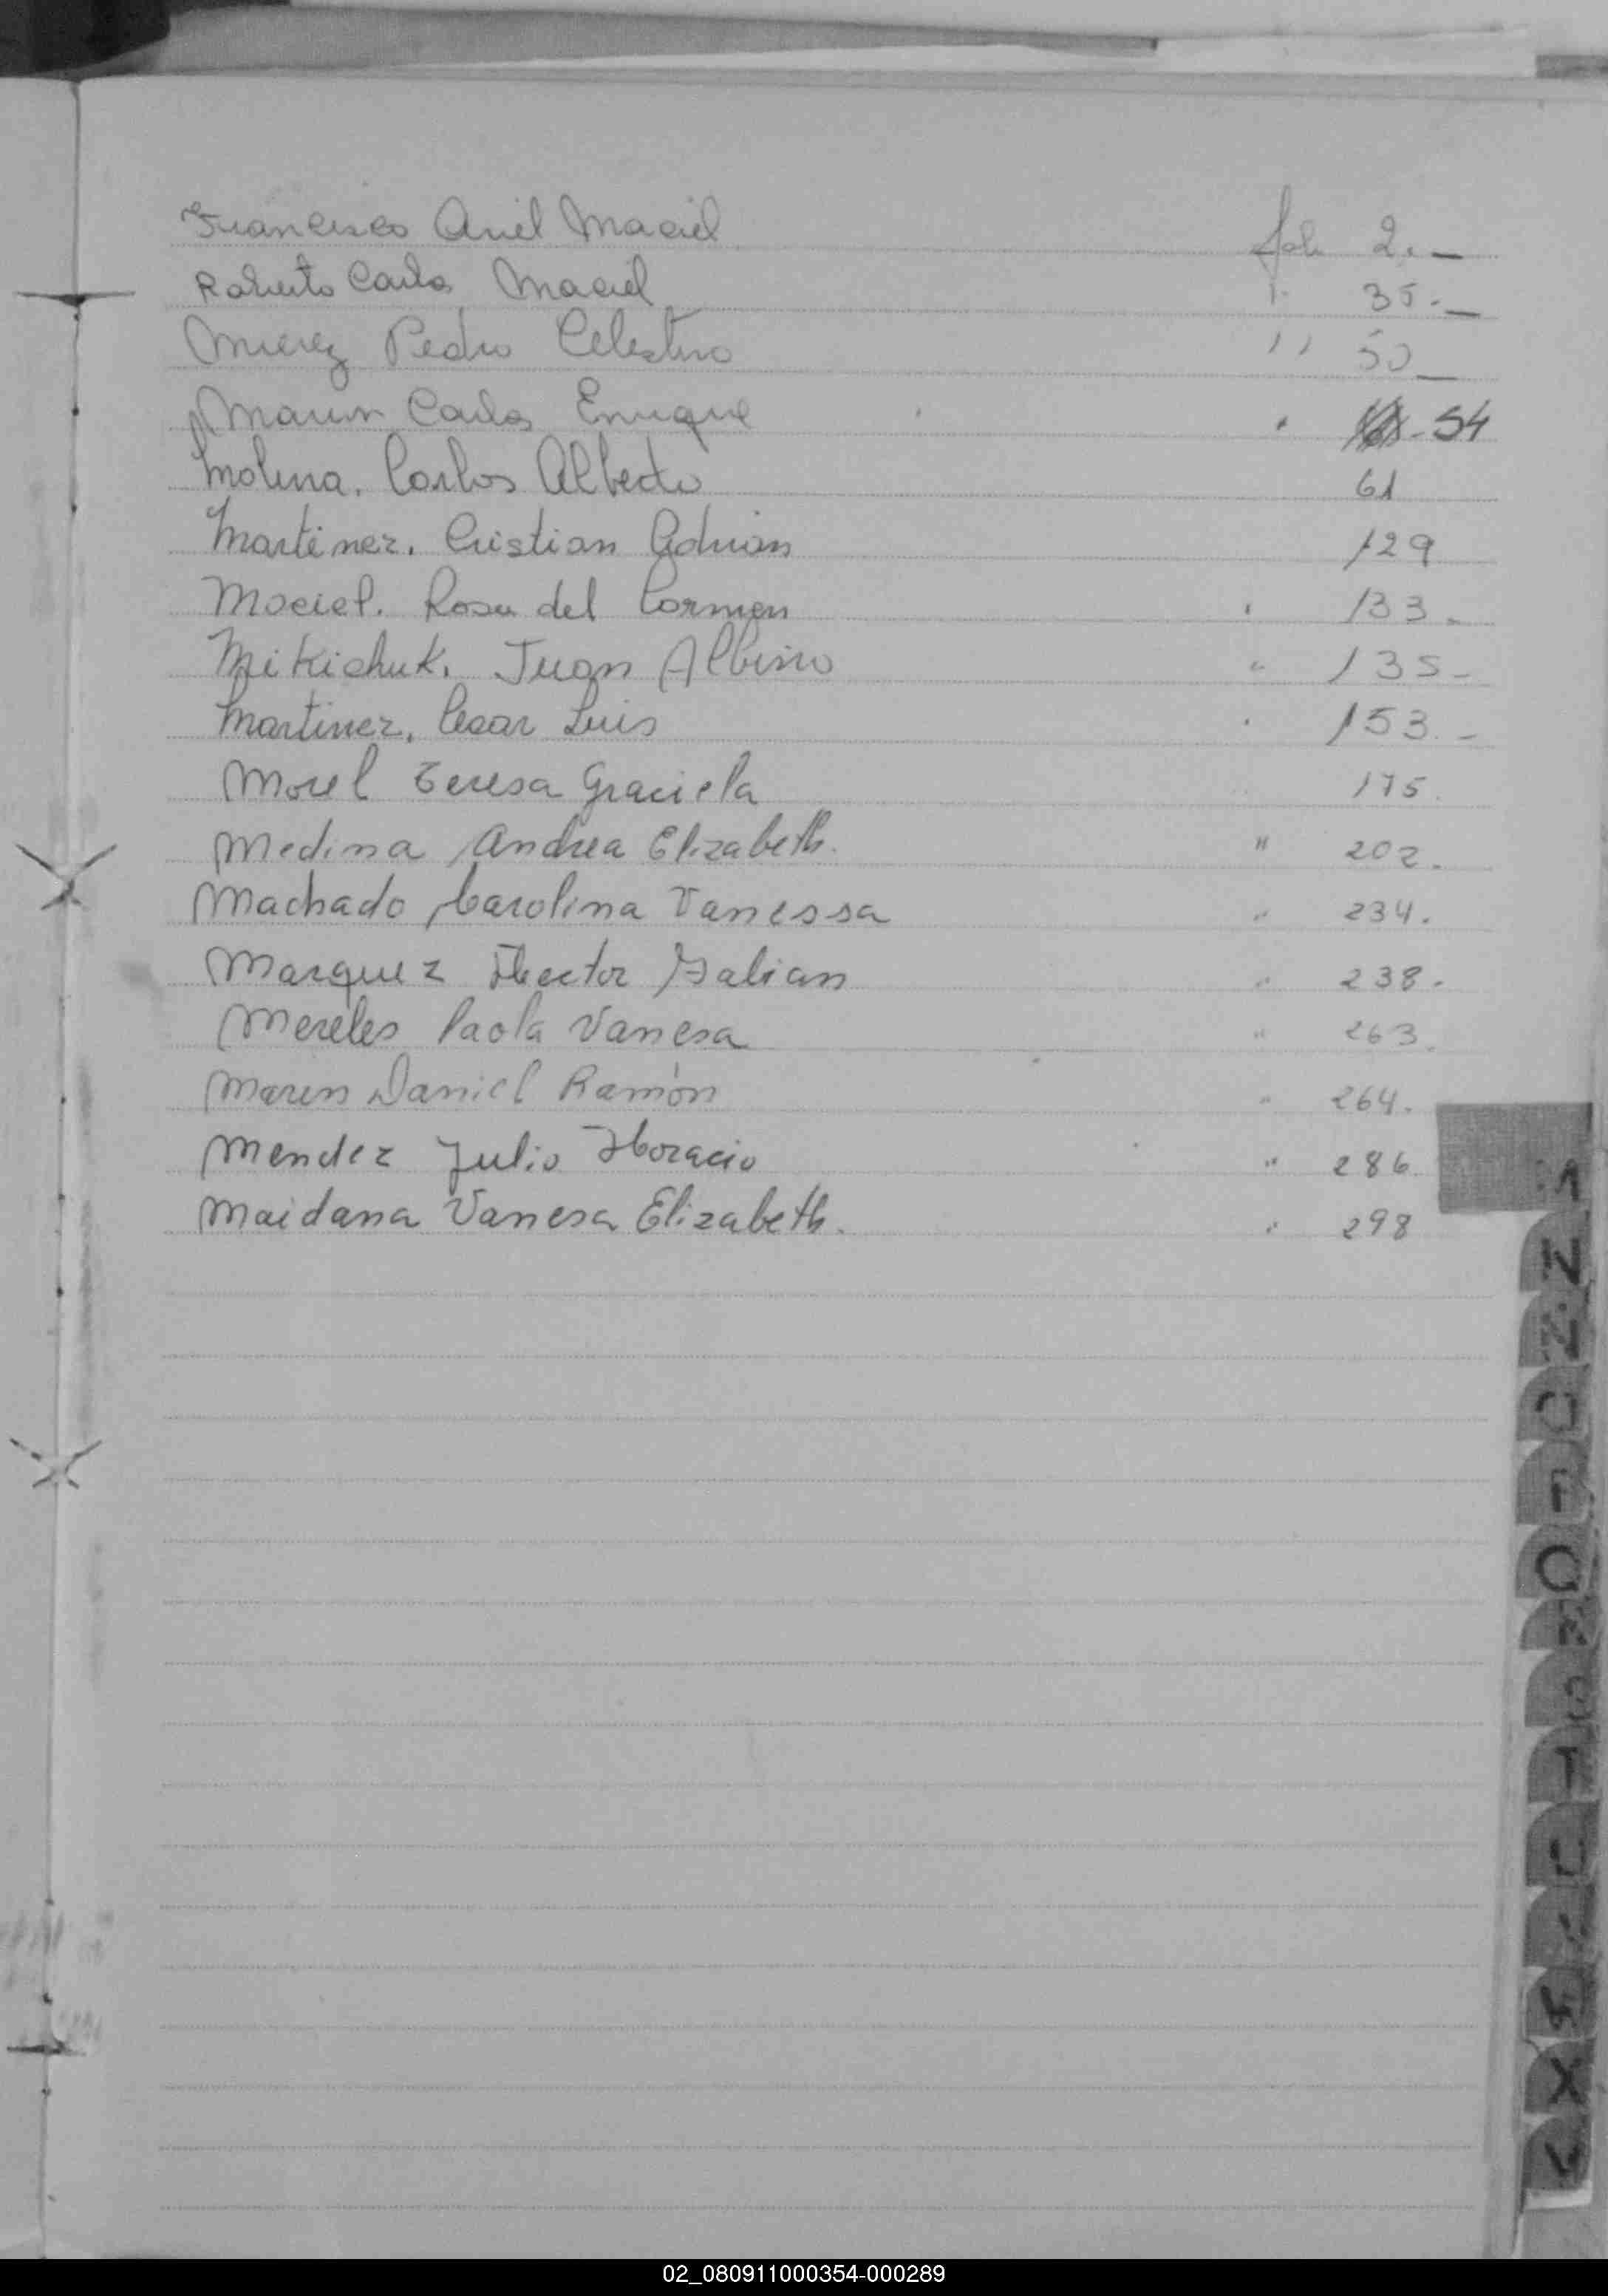 Francisco Ariel Maciel fol. 2.—
Roberto Carlos Maciel " 35.—
Mierez Pedro Celestino " 50—
Marin Carlos Enrique " 54
Molina. Carlos Alberto 61
Martinez. Cristian Adrian 129
Maciel. Rosa del Carmen " 133.
Mikichuk. Juan Albino " 135-
Martinez. Cesar Luis " 153.-
Morel Teresa Graciela 175.
Medina Andrea Elizabeth. " 202.
Machado Carolina Vanessa " 234.
Marquez Hector Fabian " 238.
Mereles Paola Vanesa " 263.
Daniel Ramón " 264.
Mendez Julio Horacio " 286.
Maidana Vanesa Elizabeth. " 298
Q
X
02_080911000354-000289